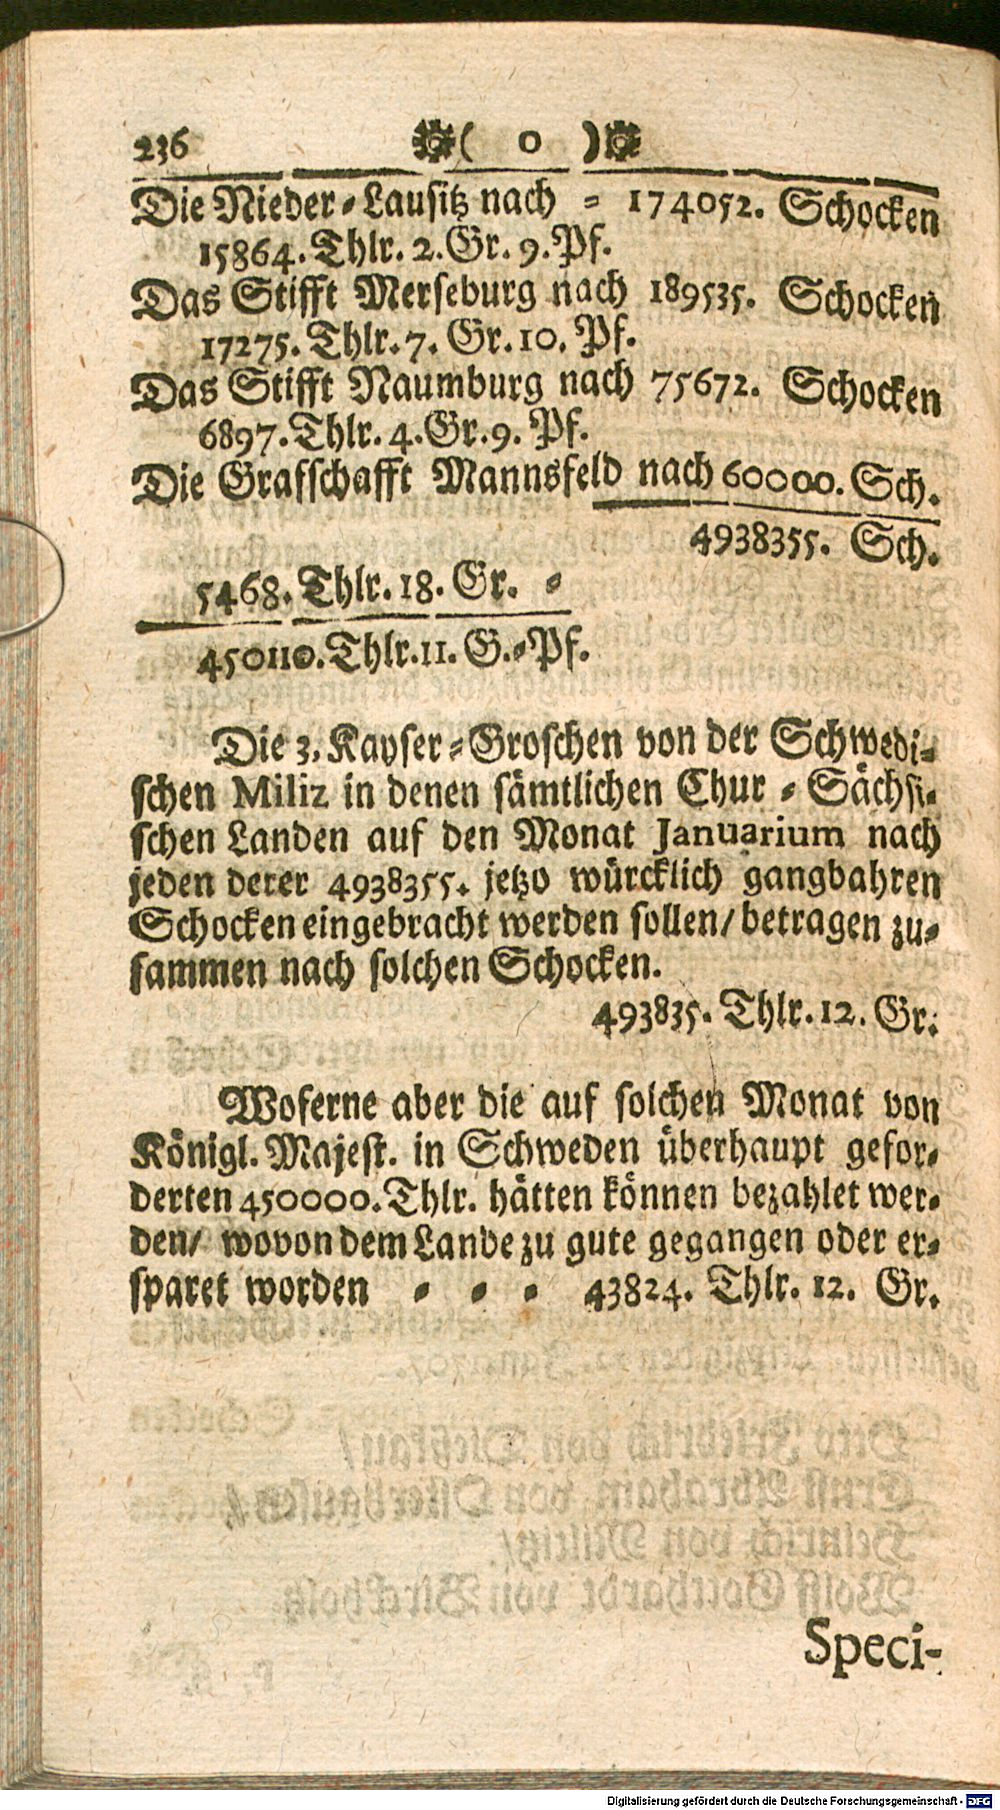 236 ( 0 )
Die Nieder-Lausitz nach = 174052. Schocken
15864. Thlr. 2. Gr. 9. Pf.
Das Stifft Merseburg nach 189535. Schocken
17275. Thlr. 7. Gr. 10. Pf.
Das Stifft Naumburg nach 75672. Schocken
6897. Thlr. 4. Gr. 9. Pf.
Die Grafschafft Mannsfeld nach 60000. Sch.
4938355. Sch.
5468. Thlr. 18. Gr. =
450110. Thlr. 11. G. = Pf.
Die 3. Kayser-Groschen von der Schwedi-
schen Miliz in denen sämtlichen Chur-Sächsi-
schen Landen auf den Monat Januarium nach
jeden derer 4938355. jetzo würcklich gangbahren
Schocken eingebracht werden sollen/ betragen zu-
sammen nach solchen Schocken.
493835. Thlr. 12. Gr.
Woferne aber die auf solchen Monat von
Königl. Majest. in Schweden überhaupt gefor-
derten 450000. Thlr. hätten können bezahlet wer-
den/ wovon dem Lande zu gute gegangen oder er-
sparet worden = = = 43824. Thlr. 12. Gr.
Speci-
Digitalisierung gefördert durch die Deutsche Forschungsgemeinschaft - DFG